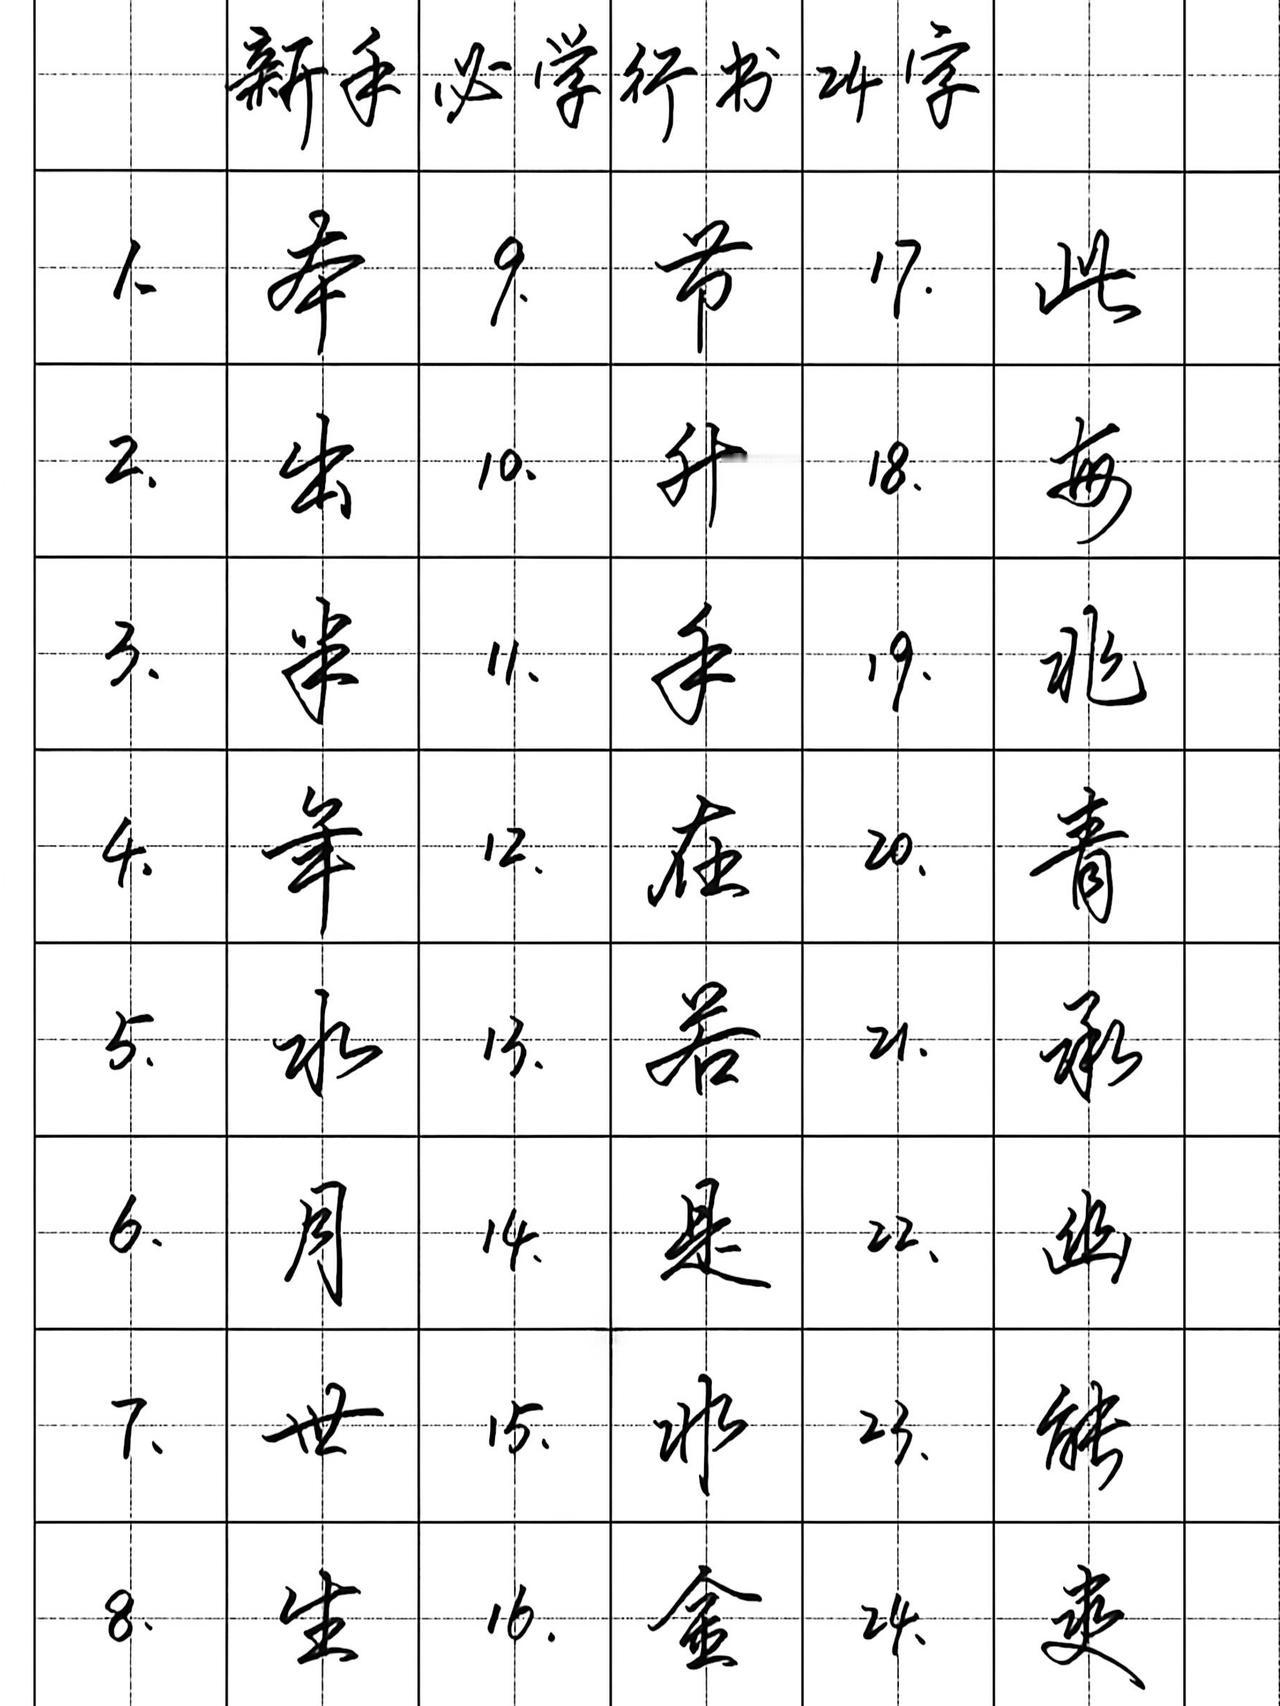 新手必学行书24字
1. 本 9. 节 17. 此
2. 出 10. 升 18. 每
3. 半 11. 手 19. 兆
4. 年 12. 在 20. 青
5. 水 13. 若 21. 承
6. 月 14. 是 22. 幽
7. 世 15. 23. 能
8. 生 16. 金 24. 爽